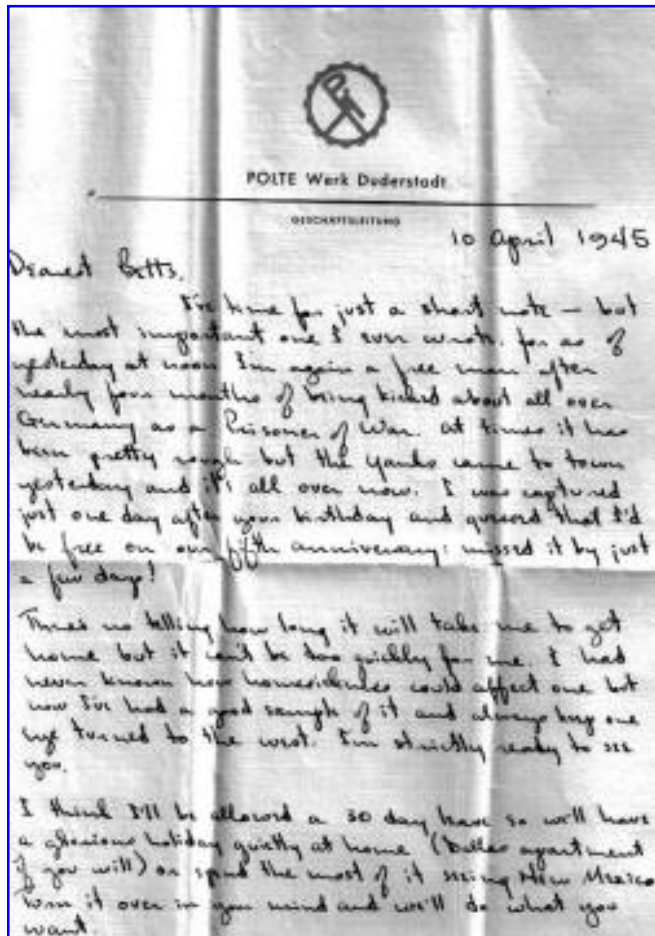 POLTE Werk Duderstadt
GESCHÄFTSLEITUNG
10 April 1945
Dearest Betts,
I've time for just a short note — but
the most important one I ever wrote, for as of
yesterday at noon I'm again a free man after
nearly four months of being kicked about all over
Germany as a Prisoner of War. At times it has
been pretty rough but the Yanks came to town
yesterday and it's all over now. I was captured
just one day after your birthday and guessed that I'd
be free on our fifth anniversary: missed it by just
a few days!
There's no telling how long it will take me to get
home but it can't be too quickly for me. I had
never known how homesickness could affect one but
now I've had a good sample of it and always keep one
eye turned to the west. I'm strictly ready to see
you.
I think I'll be allowed a 30 day leave so will have
a glorious holiday quietly at home (Dallas apartment
if you will) or spend the most of it seeing New Mexico
turn it over in your mind and we'll do what you
want.